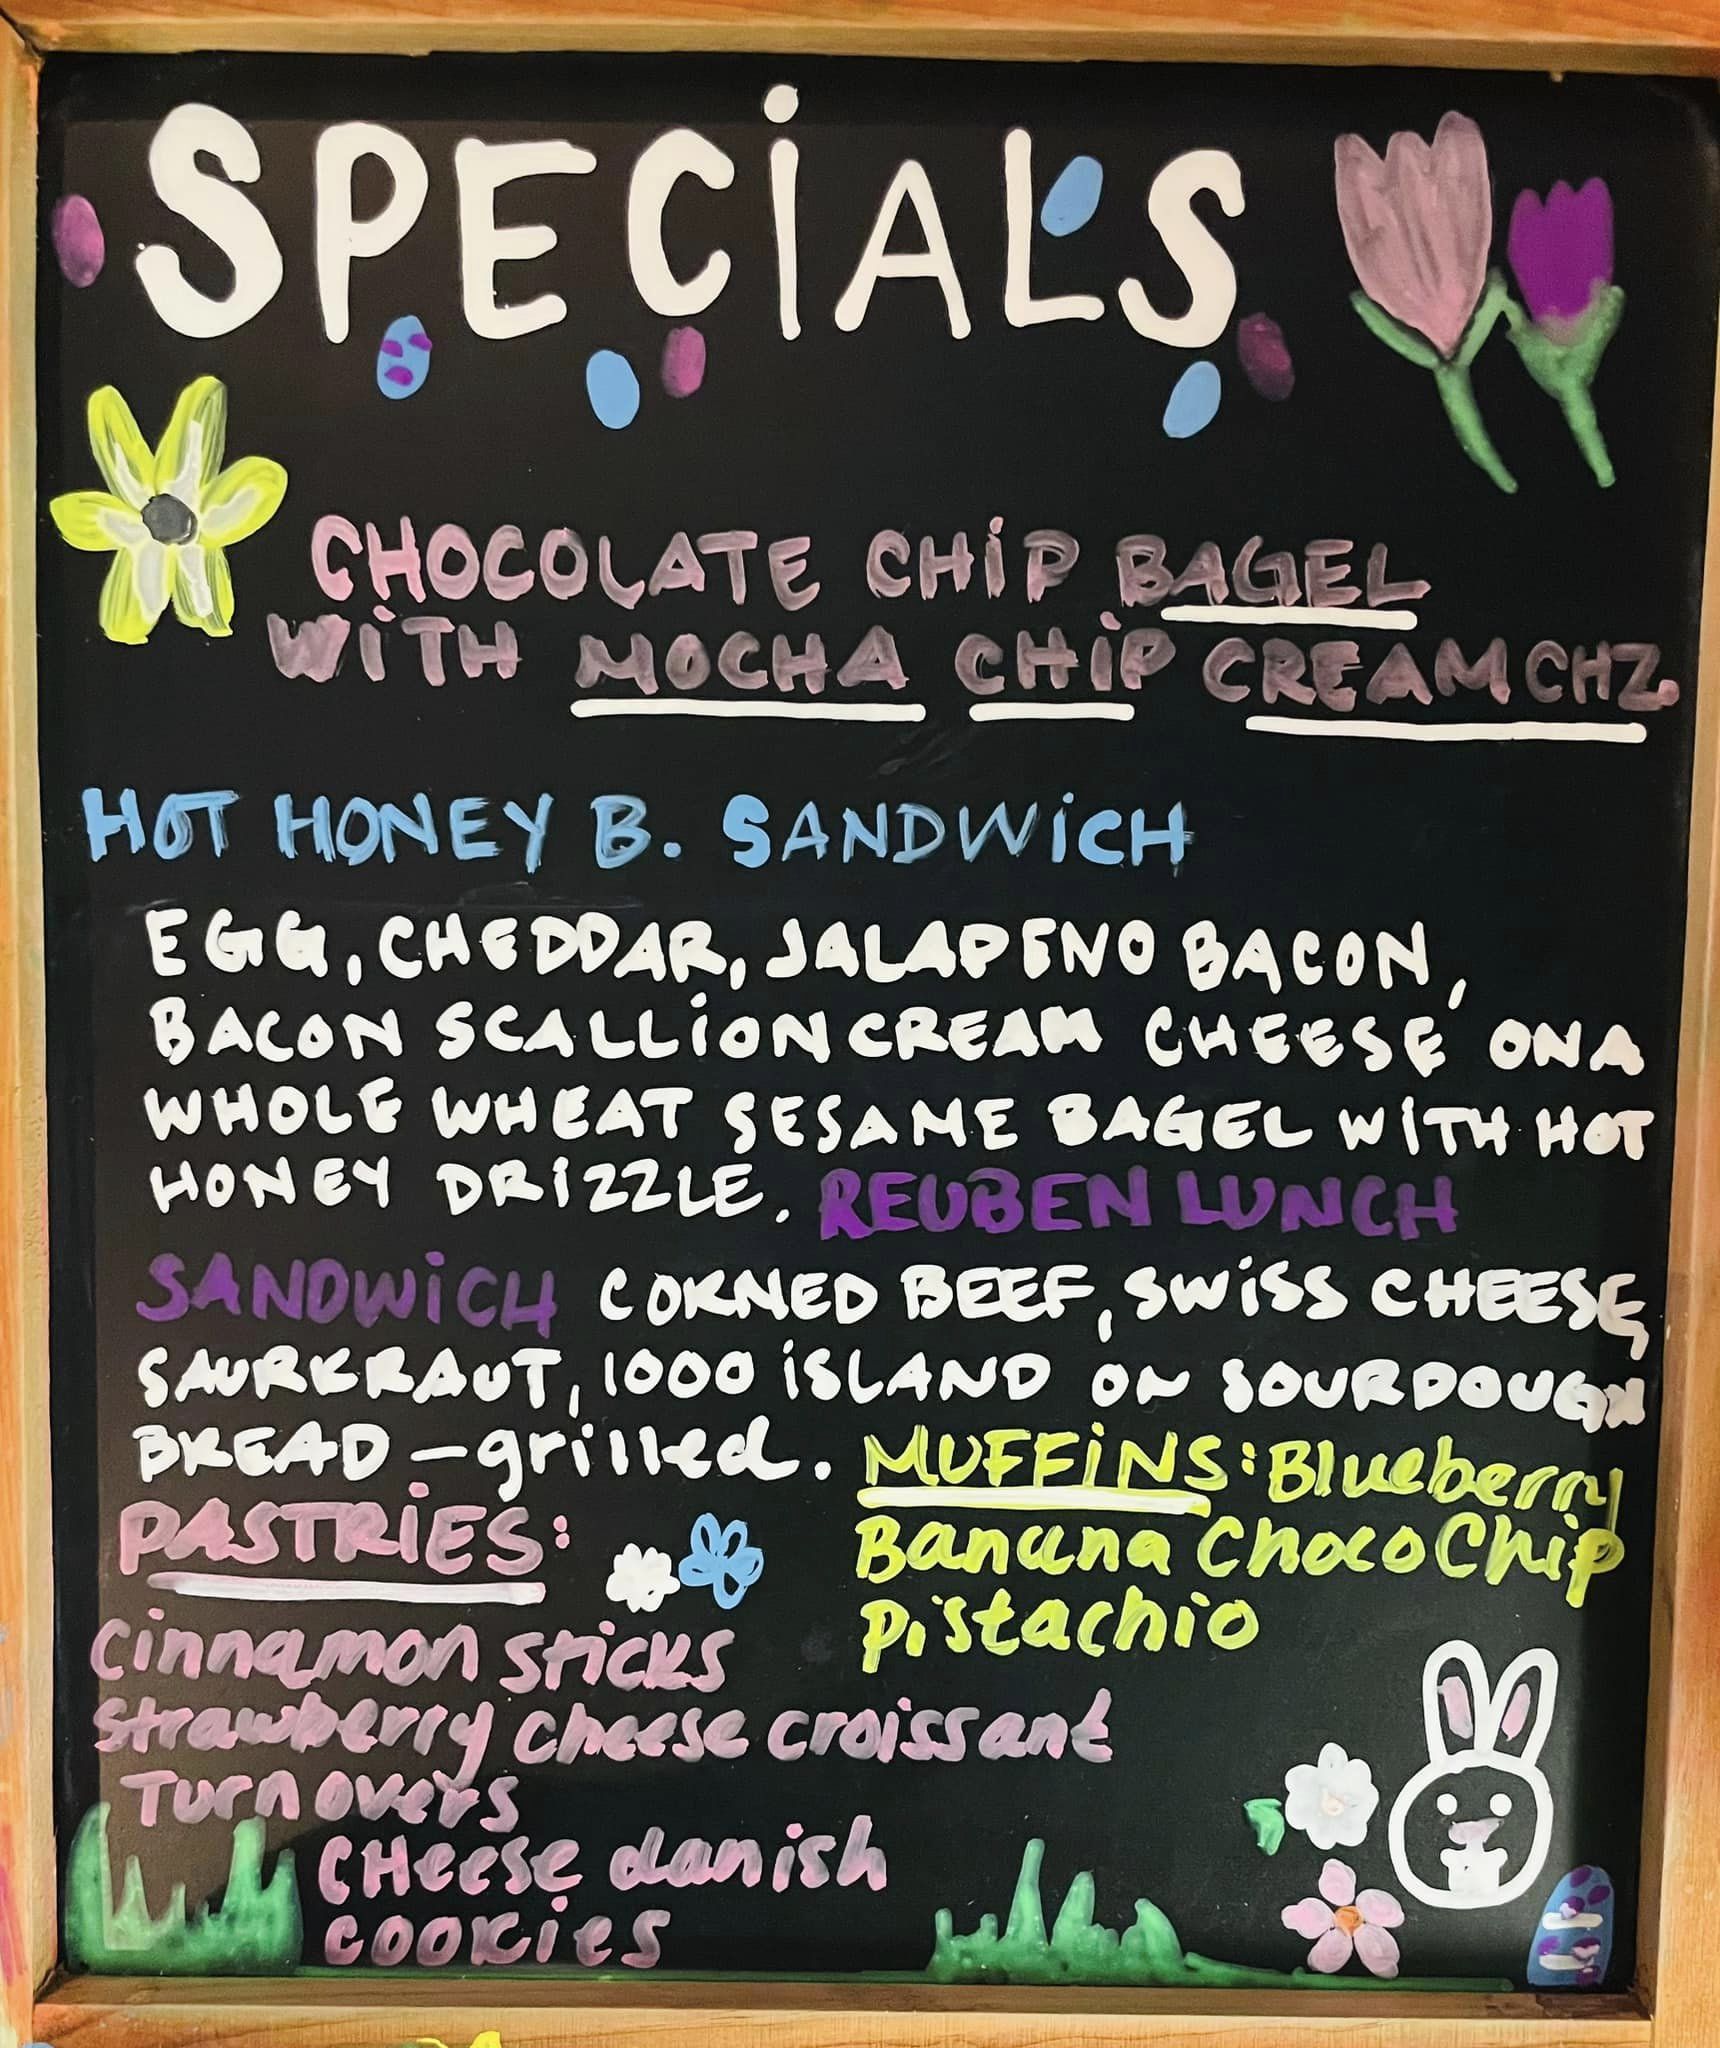 SPECiALS
CHOCOLATE CHiP BAGEL
WiTH MOCHA CHiP CREAM CHZ.
HOT HONEY B. SANDWiCH
EGG, CHEDDAR, JALAPENO BACON,
BACON SCALLiON CREAM CHEESE ON A
WHOLE WHEAT SESAME BAGEL WiTH HOT
HONEY DRIZZLE. REUBEN LUNCH
SANDWiCH CORNED BEEF, SWiSS CHEESE,
SAURKRAUT, 1000 iSLAND ON SOURDOUGH
BREAD - grilled. MUFFiNS: Blueberry
PASTRiES: Banana Choco Chip
Pistachio
Cinnamon sticks
Strawberry Cheese croissant
Turnovers
CHeese danish
cookies